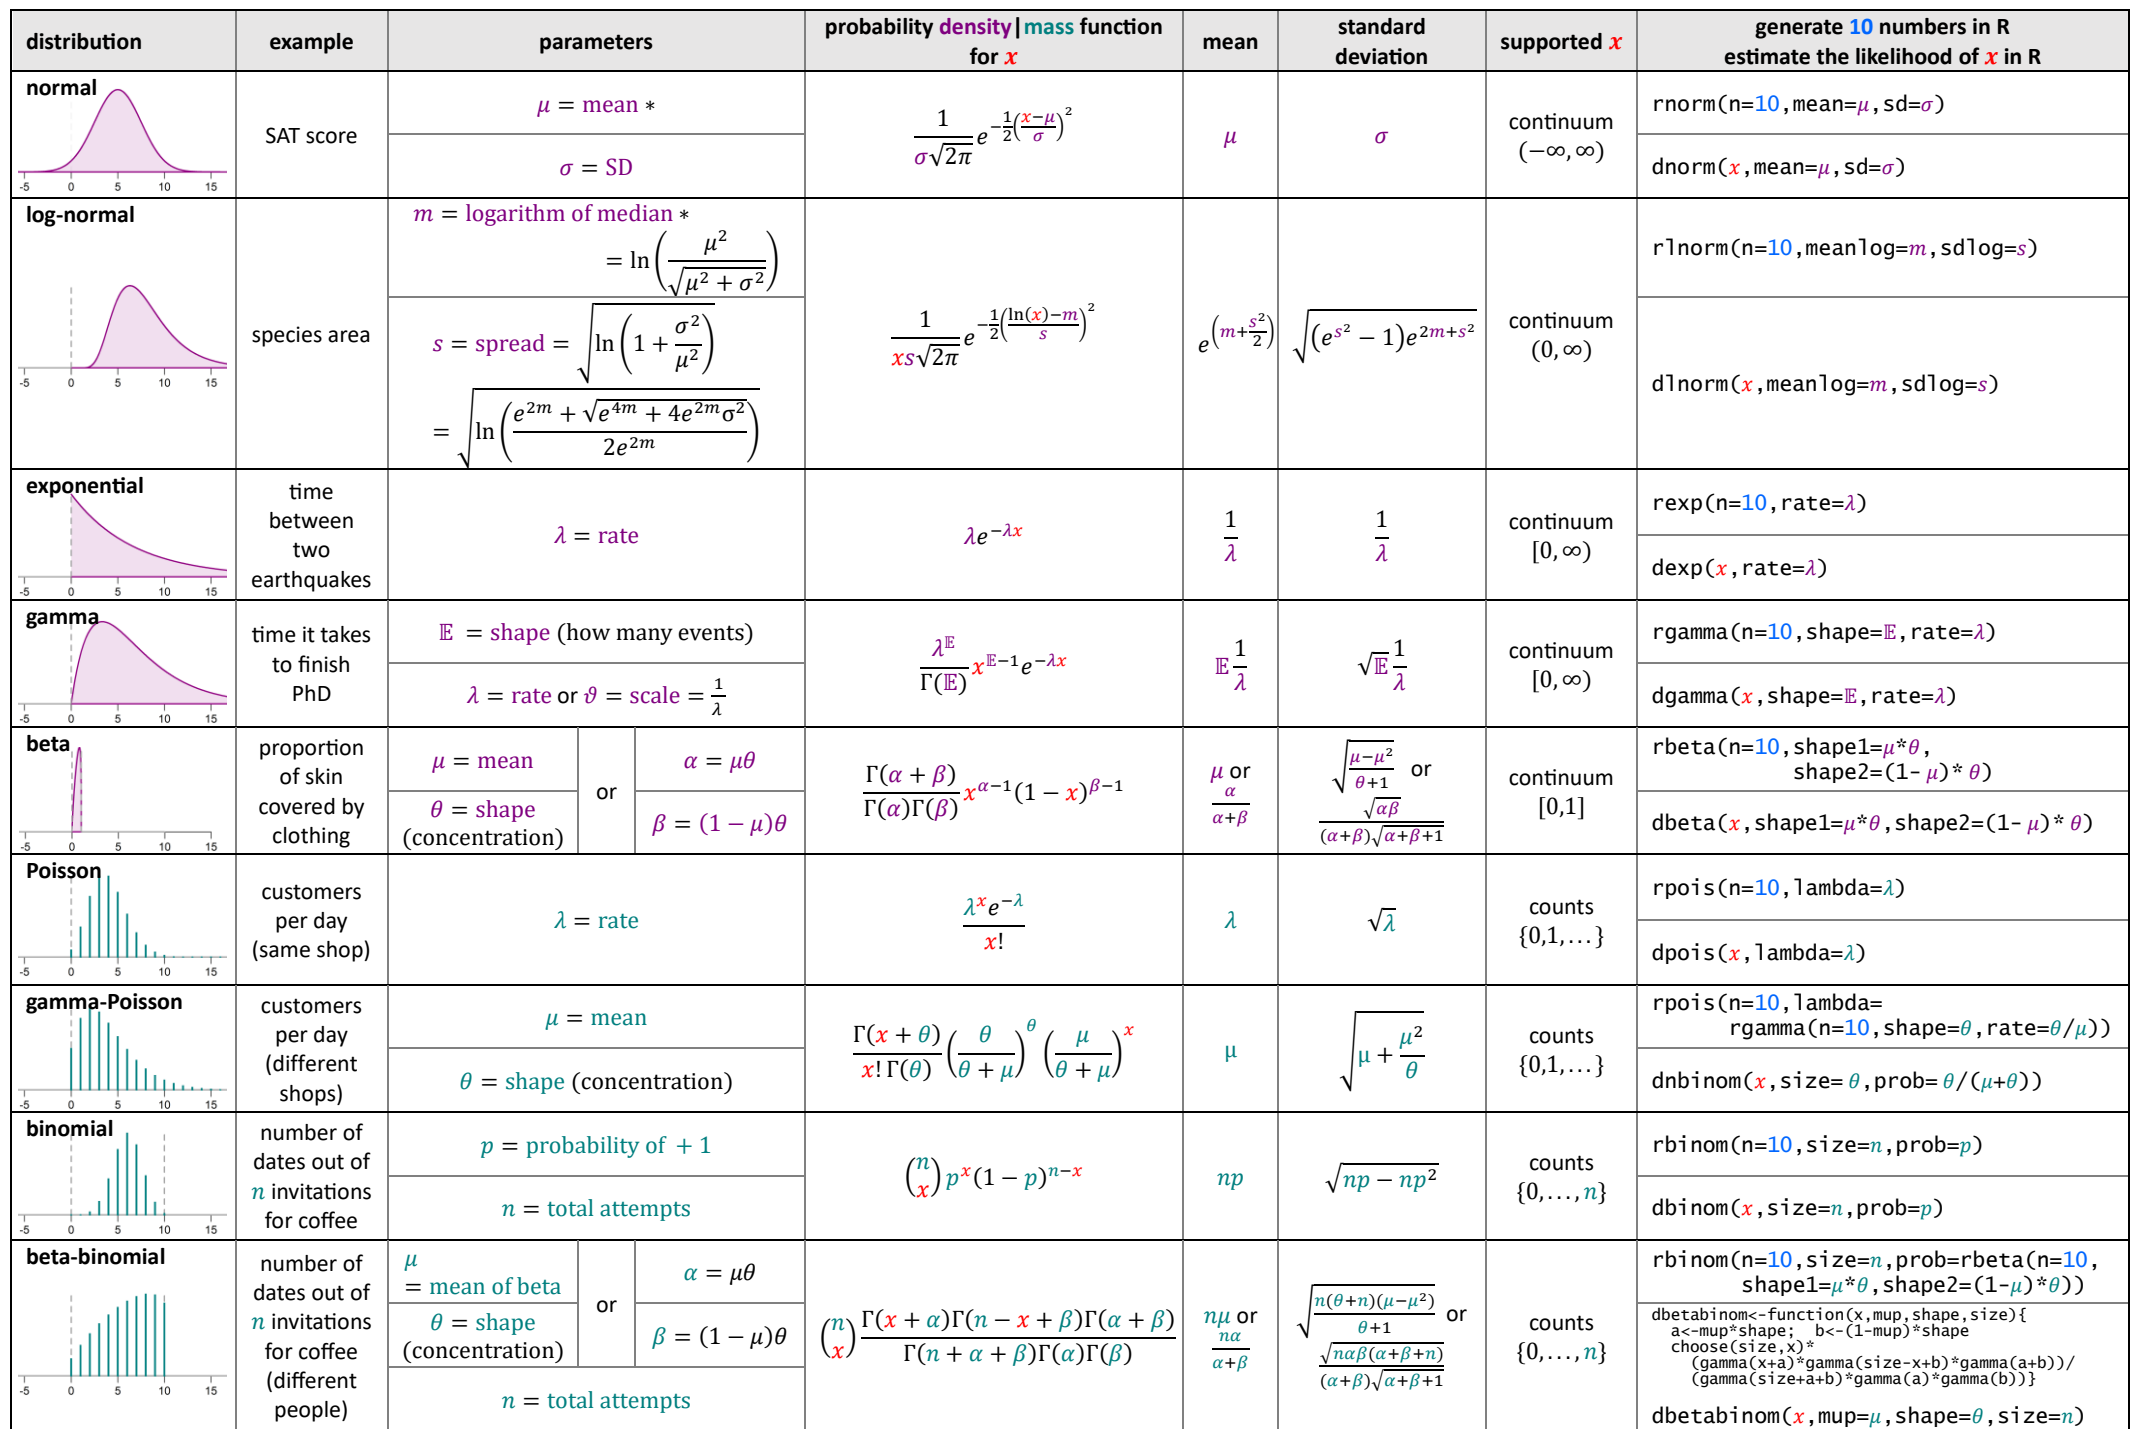 distribution
example
parameters
probability density|mass function
for x
mean
standard
deviation
supported x
generate 10 numbers in R
estimate the likelihood of x in R
normal
-5 0 5 10 15
SAT score
μ = mean *
σ = SD
1/(σ√2π) e^(−1/2((x−μ)/σ)^2)
μ
σ
continuum
(−∞, ∞)
rnorm(n=10,mean=μ,sd=σ)
dnorm(x,mean=μ,sd=σ)
log-normal
-5 0 5 10 15
species area
m = logarithm of median *
= ln(μ²/√(μ² + σ²))
s = spread = √(ln(1 + σ²/μ²))
= √(ln((e^(2m) + √(e^(4m) + 4e^(2m)σ²))/(2e^(2m))))
1/(xs√2π) e^(−1/2((ln(x)−m)/s)^2)
e^(m+s²/2)
√((e^(s²) − 1)e^(2m+s²))
continuum
(0, ∞)
rlnorm(n=10,meanlog=m,sdlog=s)
dlnorm(x,meanlog=m,sdlog=s)
exponential
-5 0 5 10 15
time
between
two
earthquakes
λ = rate
λe^(−λx)
1/λ
1/λ
continuum
[0, ∞)
rexp(n=10,rate=λ)
dexp(x,rate=λ)
gamma
-5 0 5 10 15
time it takes
to finish
PhD
𝔼 = shape (how many events)
λ = rate or ϑ = scale = 1/λ
λ^𝔼/Γ(𝔼) x^(𝔼−1) e^(−λx)
𝔼 1/λ
√𝔼 1/λ
continuum
[0, ∞)
rgamma(n=10,shape=𝔼,rate=λ)
dgamma(x,shape=𝔼,rate=λ)
beta
-5 0 5 10 15
proportion
of skin
covered by
clothing
μ = mean
θ = shape
(concentration)
or
α = μθ
β = (1 − μ)θ
Γ(α + β)/(Γ(α)Γ(β)) x^(α−1)(1 − x)^(β−1)
μ or
α/(α+β)
√((μ−μ²)/(θ+1)) or
√(αβ)/((α+β)√(α+β+1))
continuum
[0,1]
rbeta(n=10,shape1=μ*θ,
shape2=(1-μ)*θ)
dbeta(x,shape1=μ*θ,shape2=(1-μ)*θ)
Poisson
-5 0 5 10 15
customers
per day
(same shop)
λ = rate
λ^x e^(−λ)/x!
λ
√λ
counts
{0,1, … }
rpois(n=10,lambda=λ)
dpois(x,lambda=λ)
gamma-Poisson
-5 0 5 10 15
customers
per day
(different
shops)
μ = mean
θ = shape (concentration)
Γ(x + θ)/(x! Γ(θ)) (θ/(θ + μ))^θ (μ/(θ + μ))^x
μ
√(μ + μ²/θ)
counts
{0,1, … }
rpois(n=10,lambda=
rgamma(n=10,shape=θ,rate=θ/μ))
dnbinom(x,size=θ,prob=θ/(μ+θ))
binomial
-5 0 5 10 15
number of
dates out of
n invitations
for coffee
p = probability of + 1
n = total attempts
(n x) p^x (1 − p)^(n−x)
np
√(np − np²)
counts
{0, … , n}
rbinom(n=10,size=n,prob=p)
dbinom(x,size=n,prob=p)
beta-binomial
-5 0 5 10 15
number of
dates out of
n invitations
for coffee
(different
people)
μ
= mean of beta
θ = shape
(concentration)
or
α = μθ
β = (1 − μ)θ
n = total attempts
(n x) Γ(x + α)Γ(n − x + β)Γ(α + β)/(Γ(n + α + β)Γ(α)Γ(β))
nμ or
nα/(α+β)
√(n(θ+n)(μ−μ²)/(θ+1)) or
√(nαβ(α+β+n))/((α+β)√(α+β+1))
counts
{0, … , n}
rbinom(n=10,size=n,prob=rbeta(n=10,
shape1=μ*θ,shape2=(1-μ)*θ))
dbetabinom<-function(x,mup,shape,size){
a<-mup*shape; b<-(1-mup)*shape
choose(size,x)*
(gamma(x+a)*gamma(size-x+b)*gamma(a+b))/
(gamma(size+a+b)*gamma(a)*gamma(b))}
dbetabinom(x,mup=μ,shape=θ,size=n)